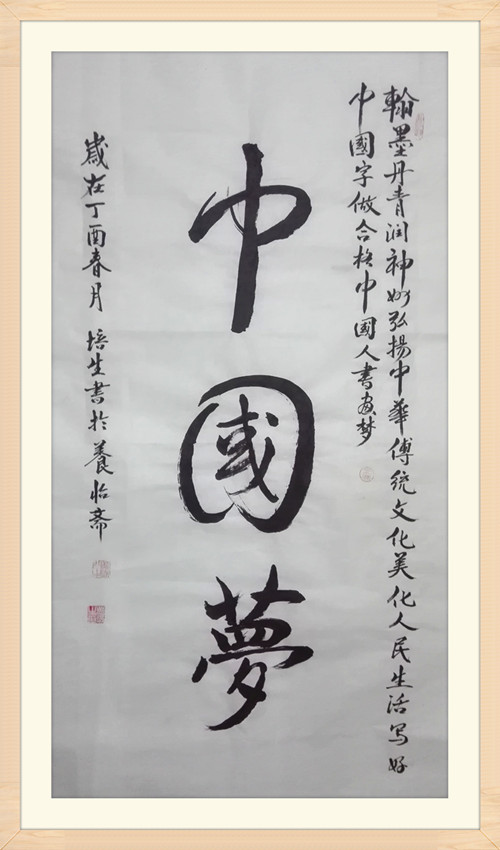 翰墨丹青润神妙弘揚中華傳统文化美化人民生活写好
中國字做合格中國人書画梦
中國夢
歲在丁酉春月 培生書於養怡斋